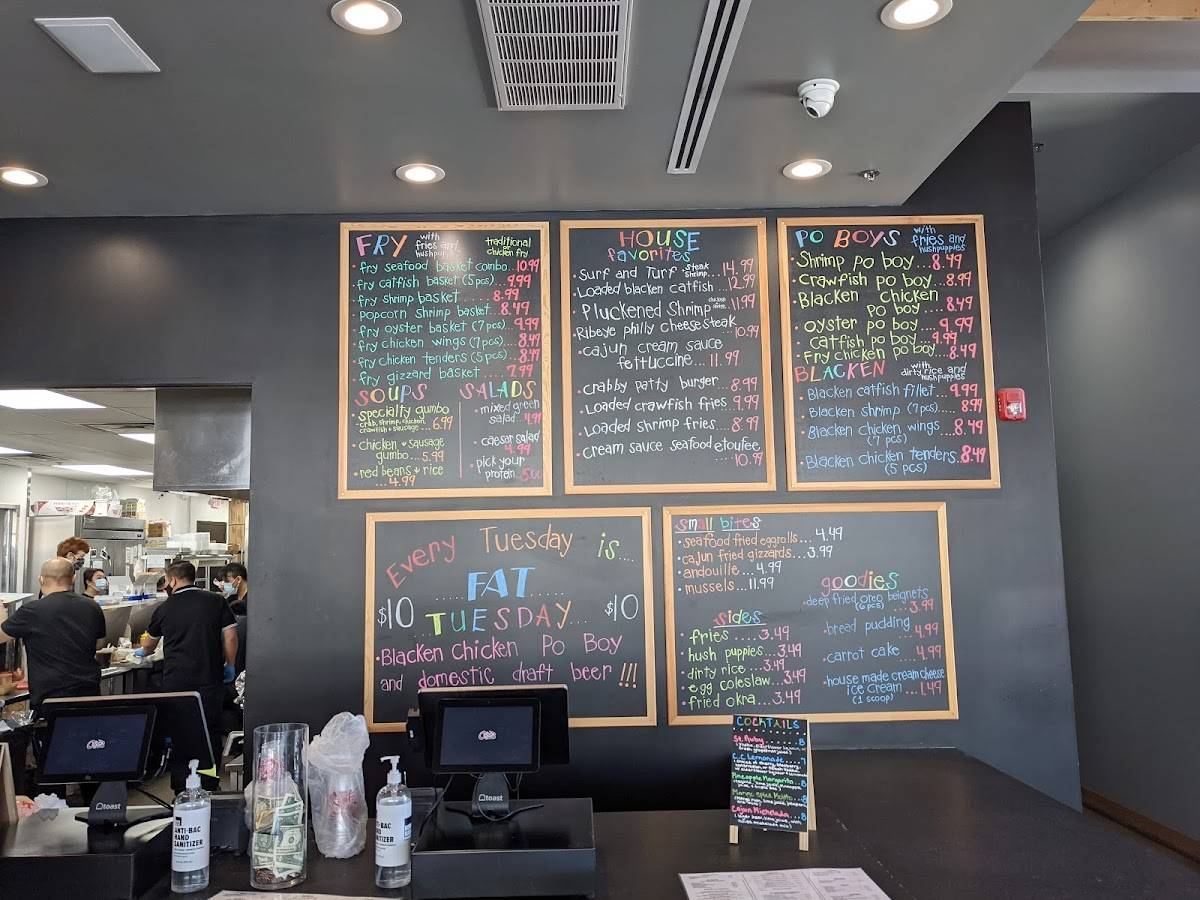 FRY with fries and hushpups traditional or chicken fry
• fry seafood basket combo...10.99
• fry catfish basket (5pcs)...9.99
• fry shrimp basket.....8.99
popcorn shrimp basket..8.49
fry oyster basket (7pcs).9.99
• fry chicken wings (7pcs)...8.49
• fry chicken tenders (5pcs)...8.49
fry gizzard basket.....7.99
SOUPS
• specialty gumbo
crab, shrimp, chicken,
crawfish + sausage...6.99
• chicken + sausage
gumbo...5.99
• red beans + rice
...4.99
SALADS
• mixed green
salad..4.99
• caesar salad
4.99
• pick your
protein..5.00
HOUSE
favorites
• Surf and Turf steak shrimp...14.99
• Loaded blacken catfish...12.99
• Pluckened Shrimp 11.99
• Ribeye philly cheesesteak
..10.99
• cajun cream sauce
fettuccine...11.99
• crabby patty burger...8.99
• Loaded crawfish fries..9.99
• Loaded shrimp fries...8.99
• cream sauce seafood etoufee
....10.99
PO BOYS with fries and hushpuppies
• Shrimp po boy...8.49
• crawfish po boy..8.99
• Blacken chicken
po boy....8.49
• oyster po boy....9.99
catfish po boy..9.99
• Fry chicken po boy..8.49
BLACKEN with dirty rice and hushpuppies
• Blacken catfish fillet..9.99
• Blacken shrimp (7pcs)...8.99
• Blacken chicken wings
(7 pcs) ...8.49
• Blacken chicken tenders..8.49
(5 pcs)
Every Tuesday is....
$10 FAT $10
TUESDAY
• Blacken Chicken Po Boy
and domestic draft beer !!!
small bites
• seafood fried eggrolls...4.49
• cajun fried gizzards...3.99
• andouille...4.99
• mussels...11.99
sides
• fries....3.49
• hush puppies...3.49
• dirty rice..3.49
• egg coleslaw..3.49
• fried okra..3.49
goodies
• deep fried oreo beignets
(6pcs)...3.99
• bread pudding
....4.99
• carrot cake...4.99
• house made cream cheese
ice cream....1.49
(1 scoop)
COCKTAILS
St. Ruby.....8
C.C Lemonade..7
Pineapple Margarita..8
Mango spiced Mojito..8
Cajun Michelada...8
toast
toast
ANTI-BAC
HAND
SANITIZER
ANTI-BAC
HAND
SANITIZER